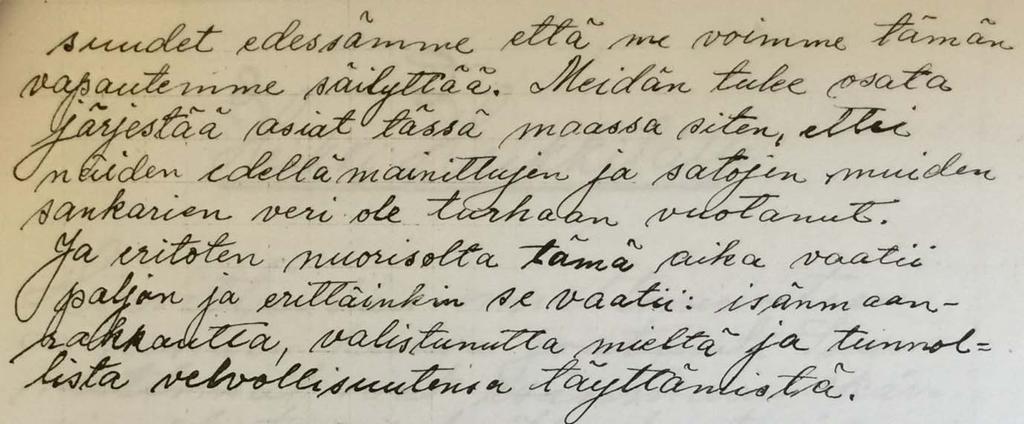 suudet edessämme että me voimme tämän
vapautemme säilyttää. Meidän tulee osata
järjestää asiat tässä maassa siten, ettei
näiden edellämainittujen ja satojen muiden
sankarien veri ole turhaan vuotanut.
Ja eritoten nuorisolta tämä aika vaatii
paljon ja erittäinkin se vaatii: isänmaan-
rakkautta, valistunutta mieltä ja tunnol=
lista velvollisuutensa täyttämistä.